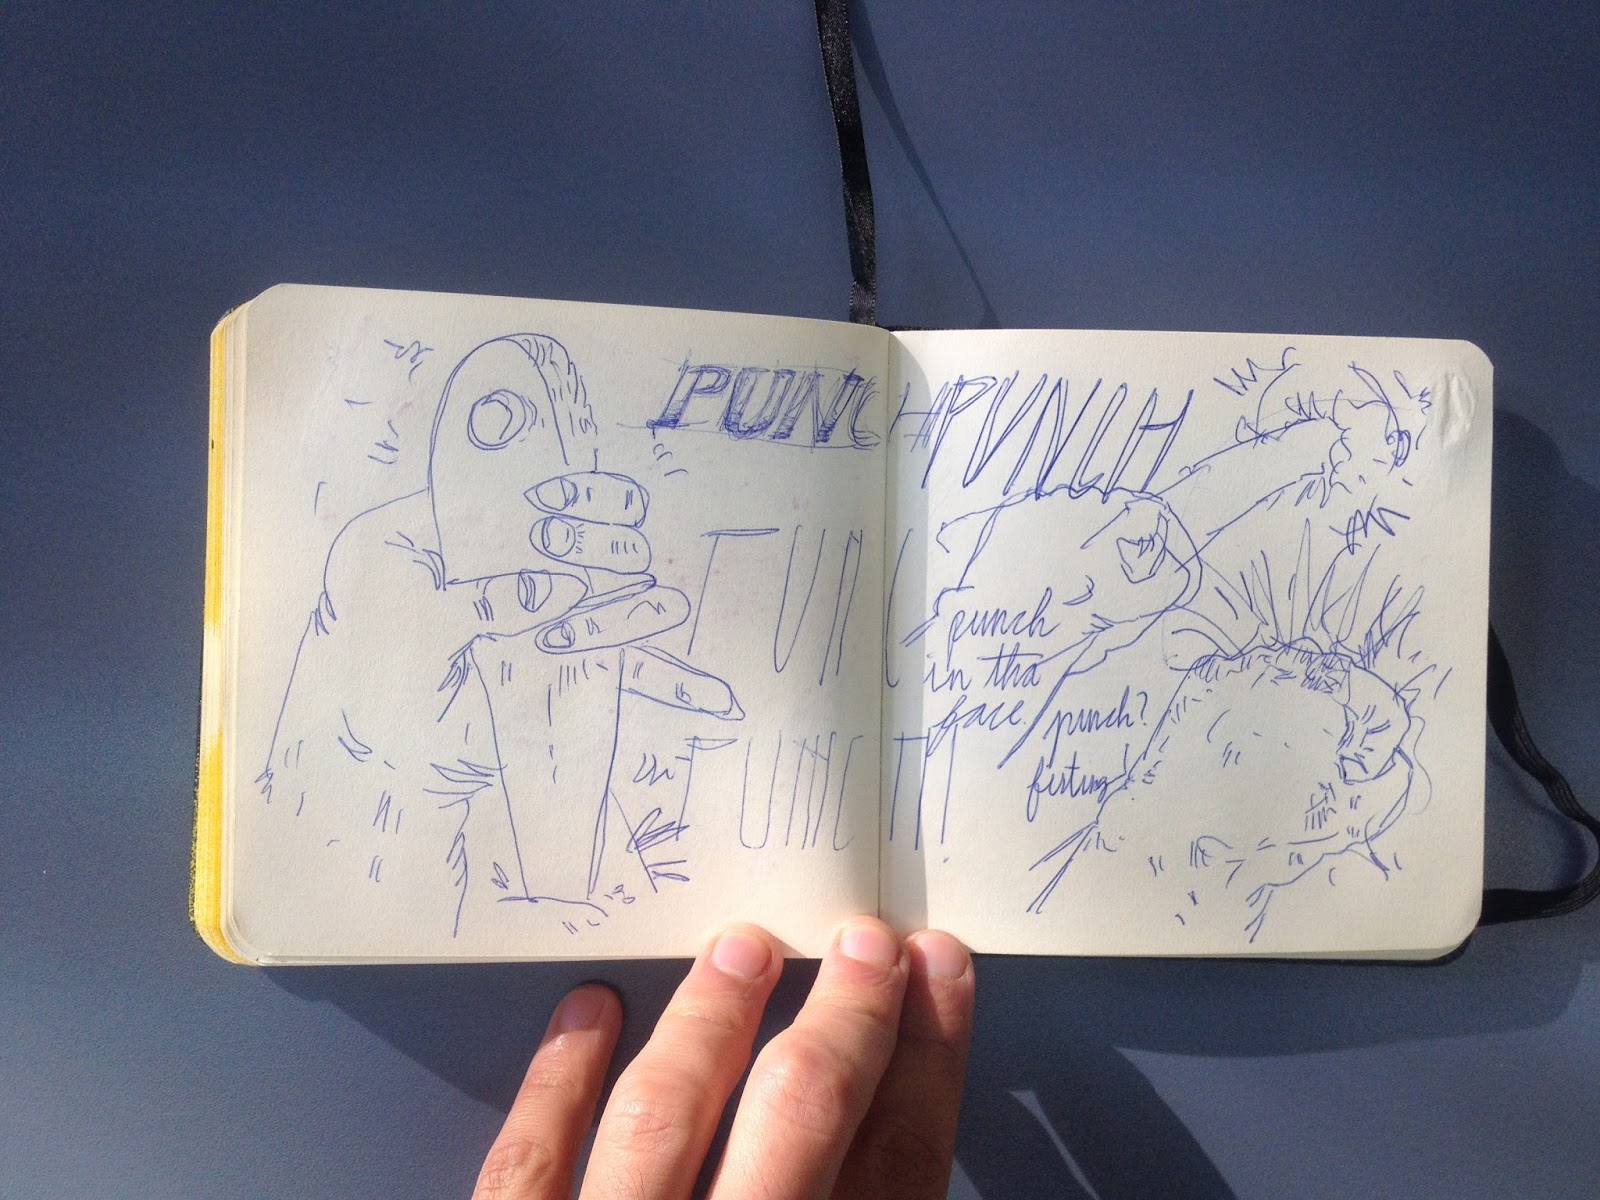 PUNCH PUNCH
PUNCH
PUNCH!
punch
in tha
face.
punch?
fisting!